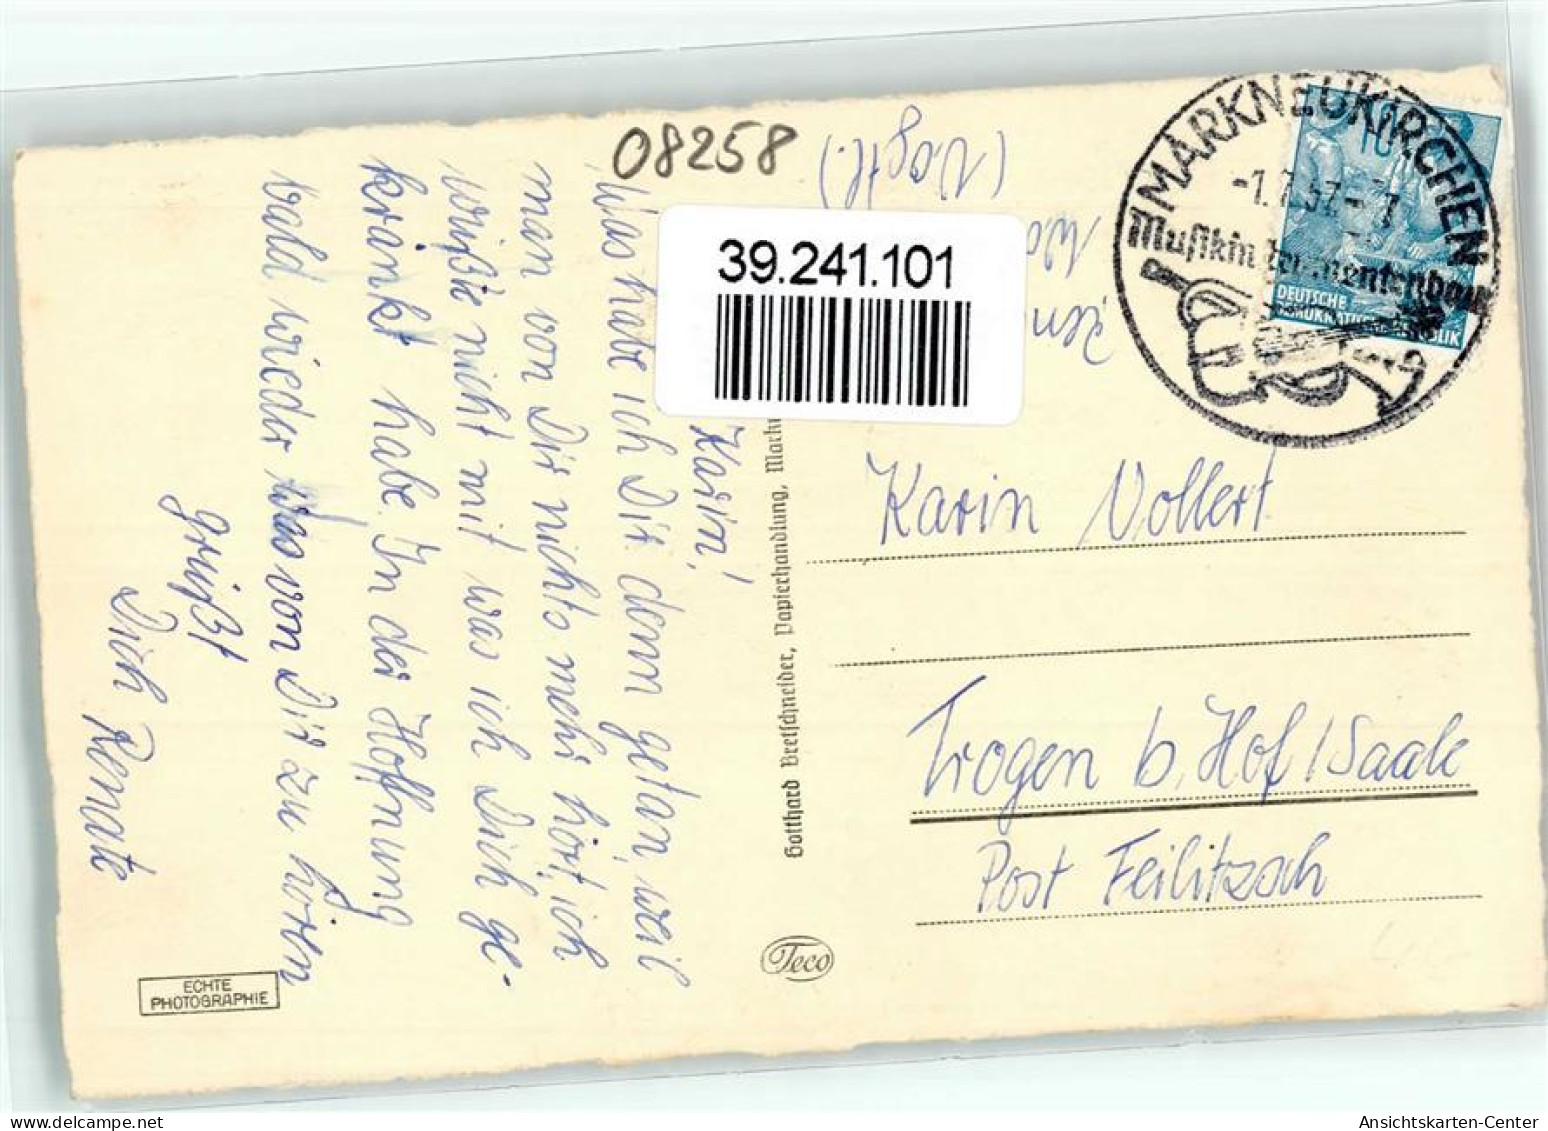 08258
(Vogtl.)
39.241.101
MARKNEUKIRCHEN
-1.7.57-7
Musikinstrumentenbau
10
DEUTSCHE
DEMOKRATISCHE REPUBLIK
Karin!
Was habe ich Dir denn getan, weil
man von Dir nichts mehr hört, ich
wüßte nicht mit was ich Dich ge-
kränkt habe. In der Hoffnung
bald wieder was von Dir zu hören
grüßt
Dich Renate
Gotthard Bretschneider, Papierhandlung, Markn
Karin Vollert
Trogen b. Hof / Saale
Post Feilitzsch
Teco
ECHTE
PHOTOGRAPHIE
Ansichtskarten-Center